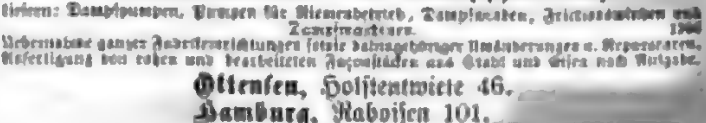 liefern: Dampfpumpen, Pumpen für Riemenbetrieb, Dampfhaken, Frictionswinden und
Dampfmotoren.
Uebernahme ganzer Fabrikeinrichtungen sowie dahingehöriger Umänderungen u. Reparaturen,
Anfertigung von rohen und bearbeiteten Façonstücken aus Stahl und Eisen nach Aufgabe.
Ottensen, Holstentwiete 46.
Hamburg, Raboisen 101.